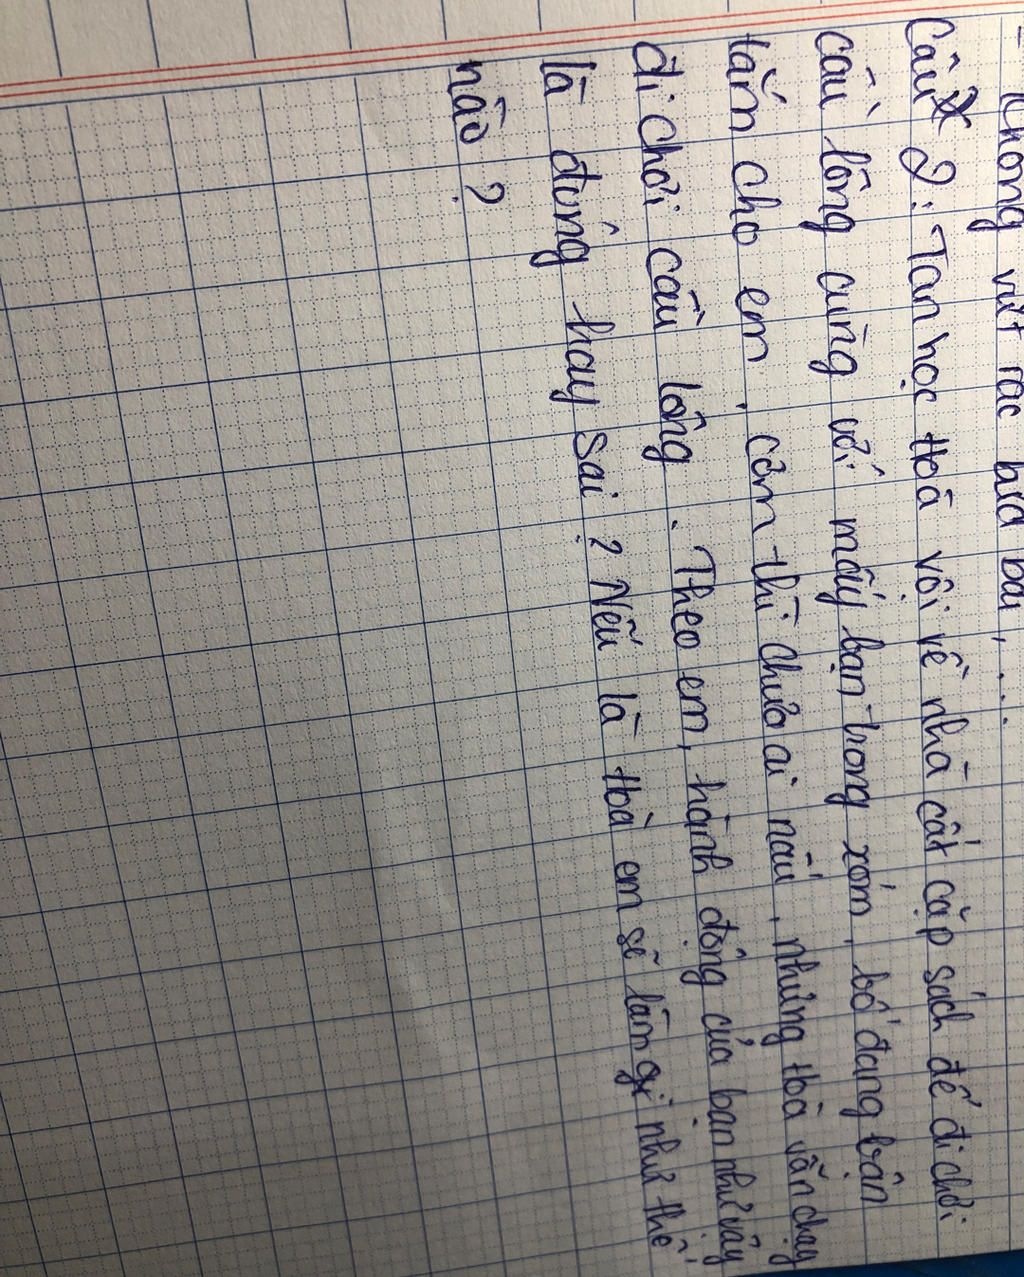 - không vứt rác bừa bãi, ...
Câu 2: Tan học Hoà vội về nhà cất cặp sách để đi chơi
cầu lông cùng với mấy bạn trong xóm, bố đang bận
tắm cho em, cơm thì chưa ai nấu, nhưng Hoà vẫn chạy
đi chơi cầu lông. Theo em, hành động của bạn như vậy
là đúng hay sai? Nếu là Hoà em sẽ làm gì như thế
nào?